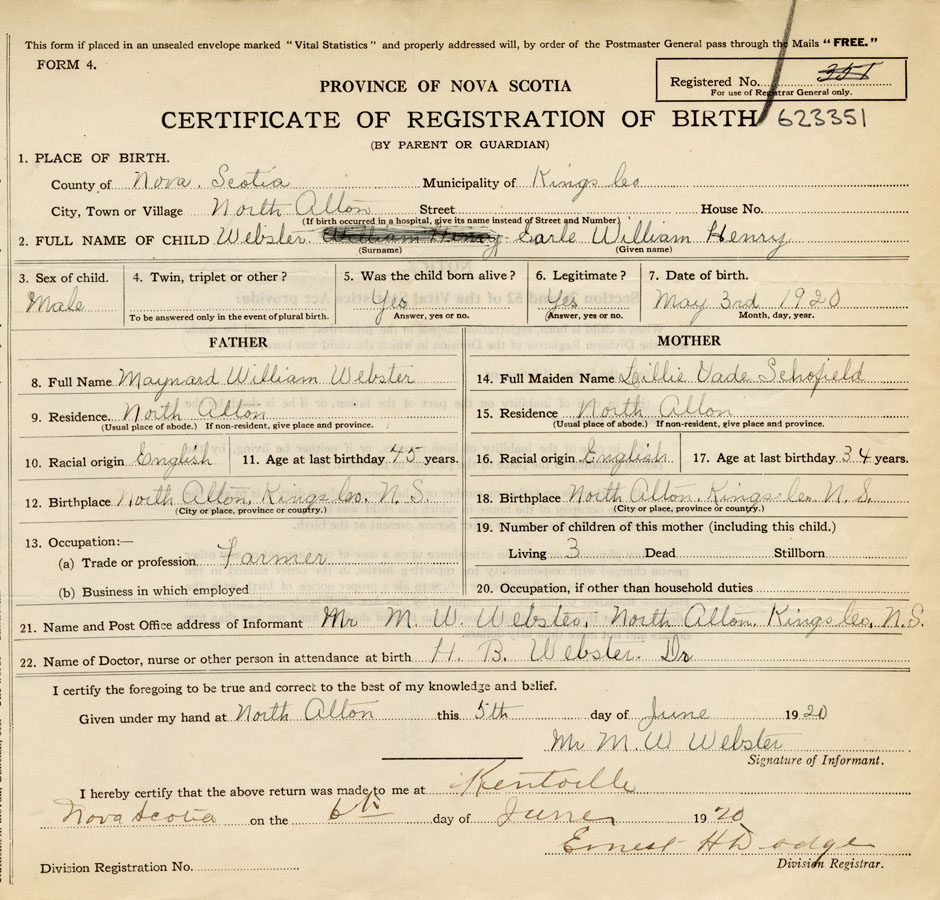 This form if placed in an unsealed envelope marked "Vital Statistics" and properly addressed will, by order of the Postmaster General pass through the Mails "FREE."
FORM 4.
Registered No. 351
For use of Registrar General only.
PROVINCE OF NOVA SCOTIA
CERTIFICATE OF REGISTRATION OF BIRTH 623351
(BY PARENT OR GUARDIAN)
1. PLACE OF BIRTH.
County of Nova Scotia Municipality of Kings Co
City, Town or Village North Alton Street House No.
(If birth occurred in a hospital, give its name instead of Street and Number)
2. FULL NAME OF CHILD Webster William Henry Earle William Henry
(Surname) (Given name)
3. Sex of child. 4. Twin, triplet or other? 5. Was the child born alive? 6. Legitimate? 7. Date of birth.
Male Yes Yes May 3rd 1920
To be answered only in the event of plural birth. Answer, yes or no. Answer, yes or no. Month, day, year.
FATHER MOTHER
8. Full Name Maynard William Webster 14. Full Maiden Name Lillie Vade Schofield
9. Residence. North Alton 15. Residence North Alton
(Usual place of abode.) If non-resident, give place and province. (Usual place of abode.) If non-resident, give place and province.
10. Racial origin English 11. Age at last birthday 45 years. 16. Racial origin English 17. Age at last birthday 34 years.
12. Birthplace North Alton, Kings Co. N.S. 18. Birthplace North Alton, Kings Co. N.S.
(City or place, province or country.) (City or place, province or country.)
13. Occupation:— 19. Number of children of this mother (including this child.)
(a) Trade or profession Farmer Living 3 Dead Stillborn
(b) Business in which employed 20. Occupation, if other than household duties
21. Name and Post Office address of Informant Mr M. W. Webster, North Alton, Kings Co, N.S.
22. Name of Doctor, nurse or other person in attendance at birth H. B. Webster. Dr
I certify the foregoing to be true and correct to the best of my knowledge and belief.
Given under my hand at North Alton this 5th day of June 1920
Mr M. W Webster
Signature of Informant.
I hereby certify that the above return was made to me at Kentville
Nova Scotia on the 6th day of June 1920
Ernest H Dodge
Division Registration No. Division Registrar.